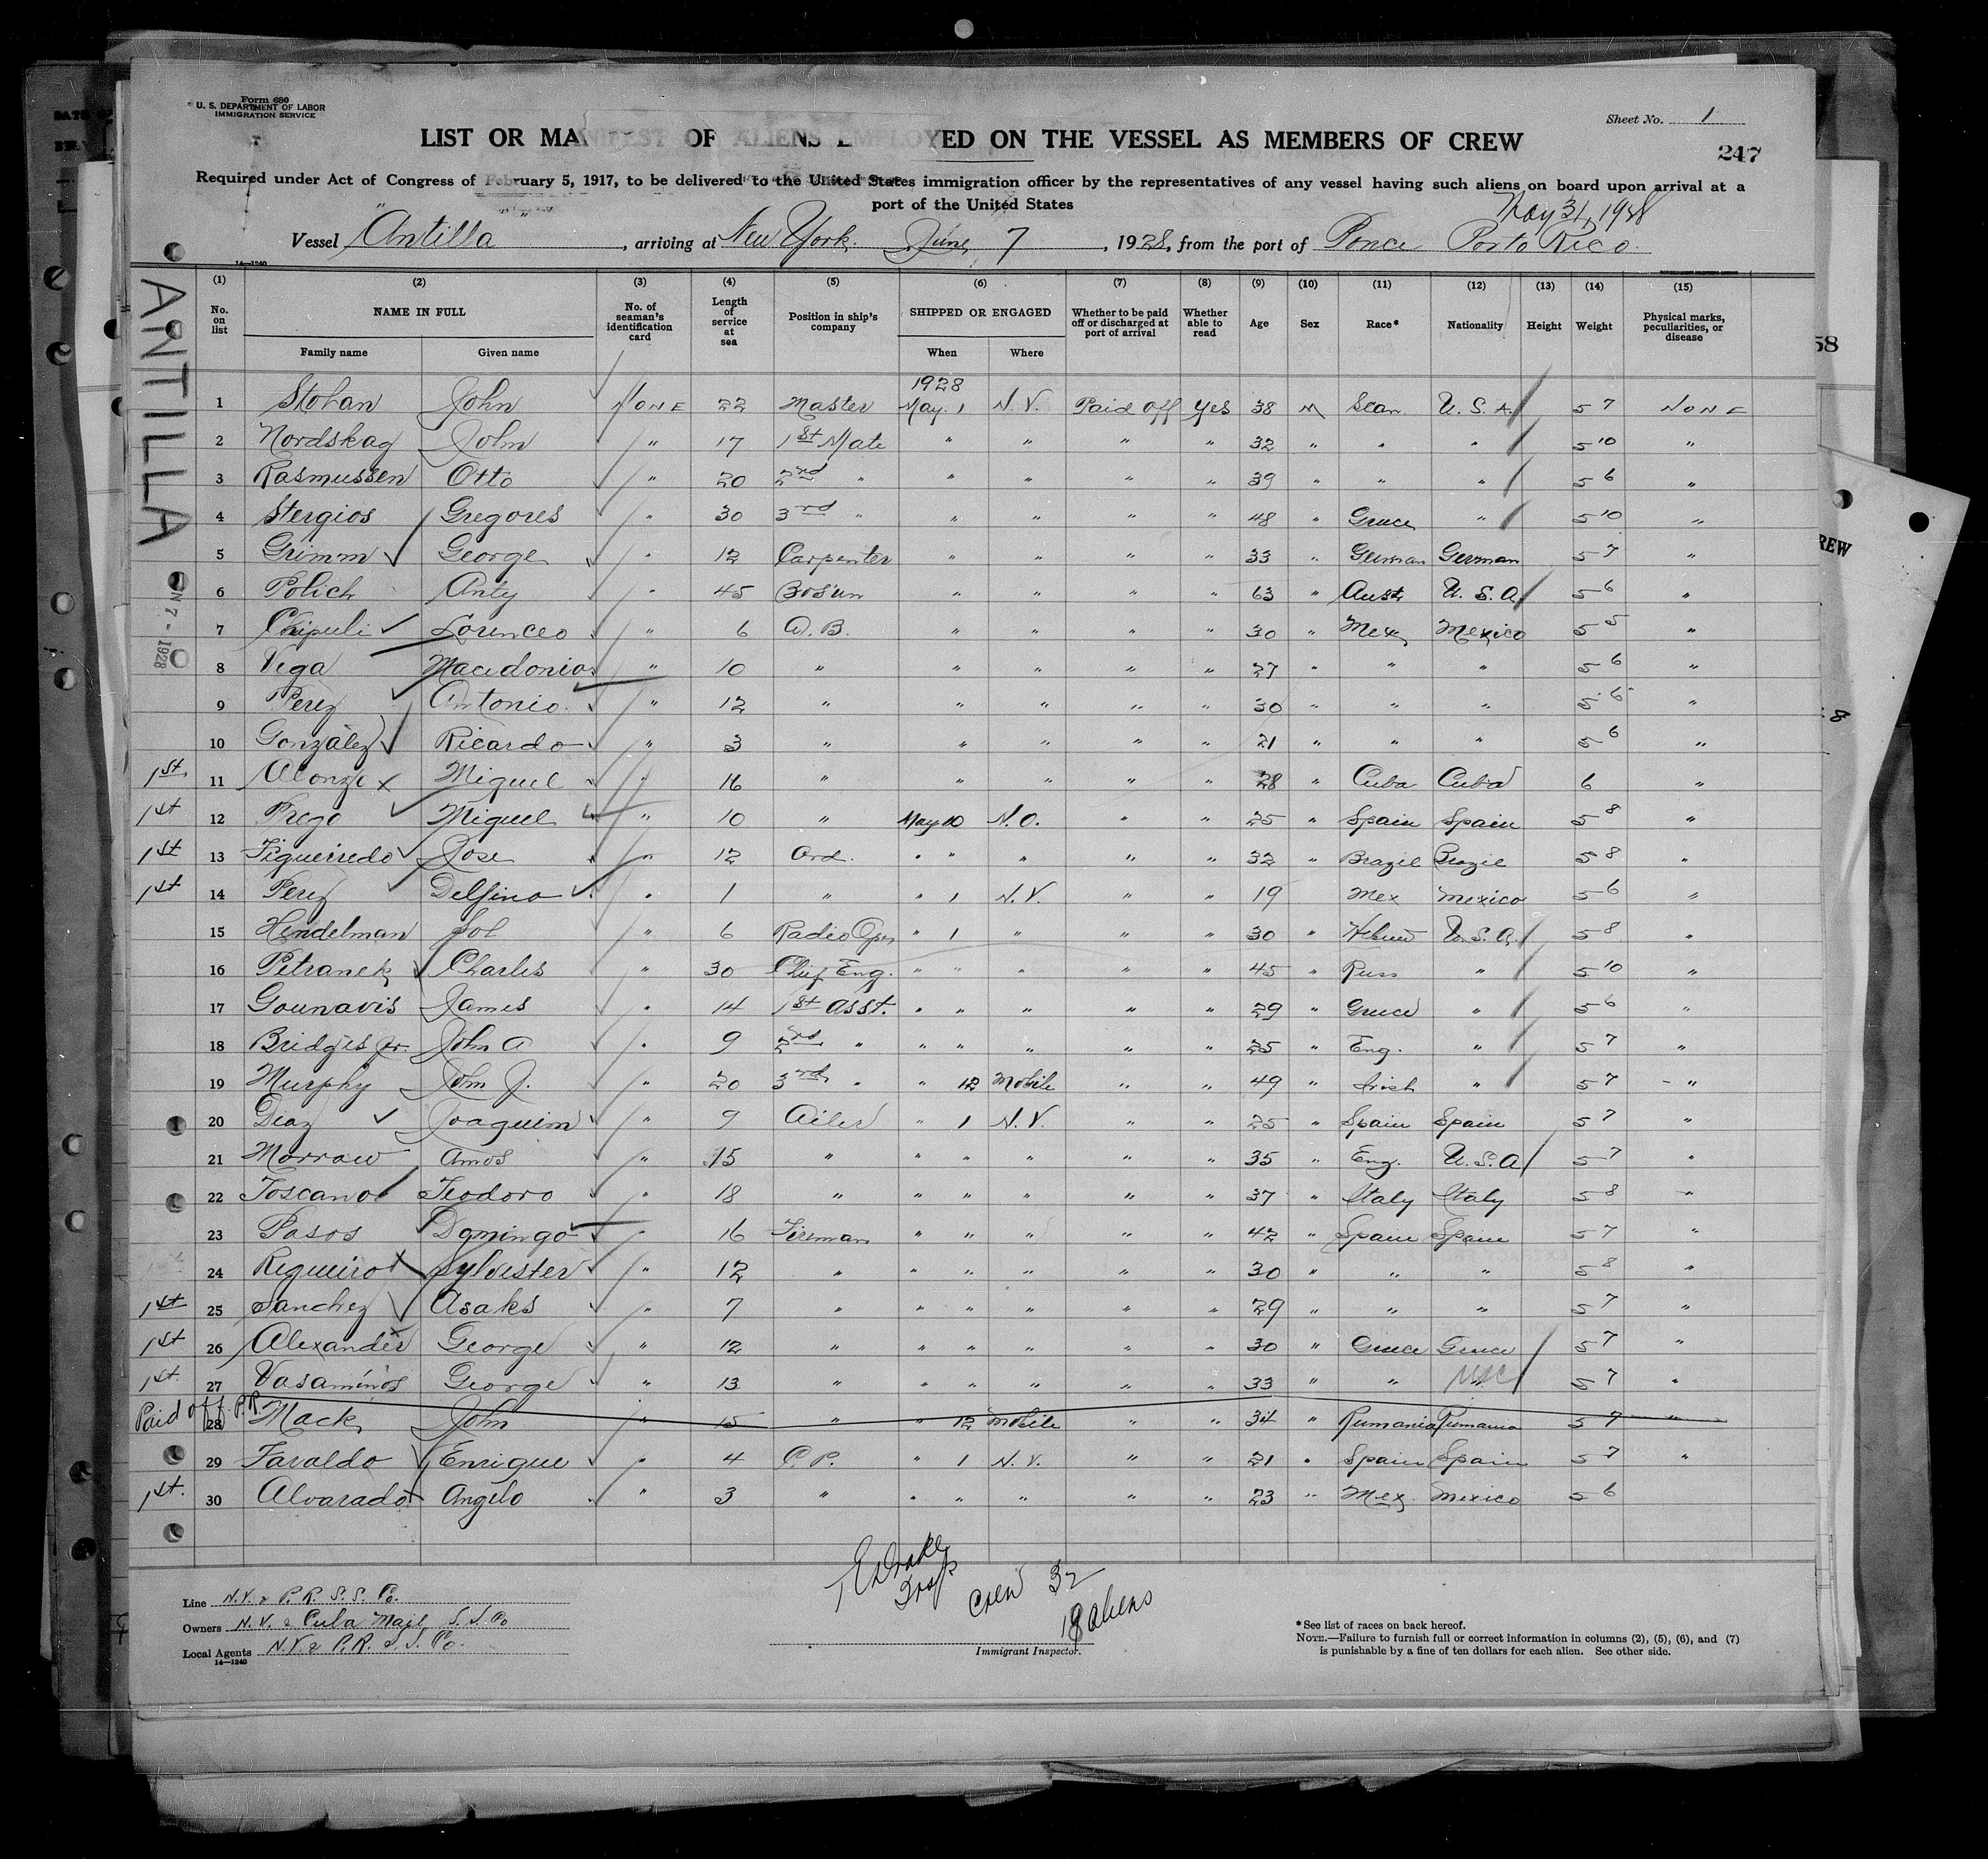 Form 680
U. S. DEPARTMENT OF LABOR
IMMIGRATION SERVICE
Sheet No. 1
LIST OR MANIFEST OF ALIENS EMPLOYED ON THE VESSEL AS MEMBERS OF CREW
247
Required under Act of Congress of February 5, 1917, to be delivered to the United States immigration officer by the representatives of any vessel having such aliens on board upon arrival at a
port of the United States
May 31, 1928
Vessel "Antilla", arriving at New York, June 7, 1928, from the port of Ponce Porto Rico
14—1240
ANTILLA
JUN 7 - 1928
(1) (2) (3) (4) (5) (6) (7) (8) (9) (10) (11) (12) (13) (14) (15)
No. on list NAME IN FULL No. of seaman's identification card Length of service at sea Position in ship's company SHIPPED OR ENGAGED Whether to be paid off or discharged at port of arrival Whether able to read Age Sex Race* Nationality Height Weight Physical marks, peculiarities, or disease
Family name Given name When Where
1928
1 Stohan John None 22 Master May. 1 N.Y. Paid Off Yes 38 M Scan. U.S.A. 5 7 None
2 Nordskag John " 17 1st Mate " " " " 32 " " " 5 10 "
3 Rasmussen Otto " 20 2nd " " " " " 39 " " " 5 6 "
4 Stergios Gregores " 30 3rd " " " " " 48 " Greece " 5 10 "
5 Grimm George " 12 Carpenter " " " " 33 " German German 5 7 "
6 Polich Anty " 45 Bosun " " " " 63 " Aust U.S.A. 5 6 "
7 Chipuli Lorenceo " 6 A.B. " " " " 30 " Mex Mexico 5 5 "
8 Vega Macedonio " 10 " " " " " 27 " " " 5 6 "
9 Perez Antonio " 12 " " " " " 30 " " " 5 6 "
10 Gonzalez Ricardo " 3 " " " " " 21 " " " 5 6 "
1st 11 Alonzo Miguel " 16 " " " " " 28 " Cuba Cuba 6 "
1st 12 Prego Miguel " 10 " May 10 N.O. " " 25 " Spain Spain 5 8 "
1st 13 Figueiredo Jose " 12 Ord. " " " " " 32 " Brazil Brazil 5 8 "
1st 14 Perez Delfino " 1 " " 1 N.Y. " " 19 Mex Mexico 5 6 "
15 Hendelman Sol " 6 Radio Oper " 1 " " " 30 " Hebrew U.S.A. 5 8 "
16 Petranek Charles " 30 Chief Eng. " " " " " 45 " Russ " 5 10 "
17 Gounavis James " 14 1st Asst. " " " " " 29 " Greece " 5 6 "
18 Bridges Jr. John A " 9 2nd " " " " " " 25 " Eng. " 5 7 "
19 Murphy John J. " 20 3rd " " 12 Mobile " " 49 " Irish " 5 7 "
20 Diaz Joaquim " 9 Oiler " 1 N.Y. " " 25 " Spain Spain 5 7 "
21 Morrow Amos " 15 " " " " " " 35 " Eng. U.S.A 5 7 "
22 Toscano Teodoro " 18 " " " " " " 37 " Italy Italy 5 8 "
23 Pasos Domingo " 16 Fireman " " " " " 42 " Spain Spain 5 7 "
24 Rigueiro Sylvester " 12 " " " " " " 30 " " " 5 8 "
1st 25 Sanchez Asaks " 7 " " " " " " 29 " " " 5 7 "
1st 26 Alexander George " 12 " " " " " " 30 " Greece Greece 5 7 "
1st. 27 Vasaminos George " 13 " " " " " " 33 " " " USC 5 7 "
Paid off P.R. 28 Mack John " 15 " " 12 Mobile " " 34 " Rumania Rumania 5 7 "
29 Faraldo Enrique " 4 C.P. " 1 N.Y. " " 21 " Spain Spain 5 7 "
1st. 30 Alvarado Angelo " 3 " " " " " " 23 " Mex. Mexico 5 6
Crew 32
18 aliens
Line N.Y. & P.R. S.S. Co.
Owners N.Y. & Cuba Mail S.S. Co
Local Agents N.Y. & P.R. S.S. Co.
14—1240
Immigrant Inspector.
*See list of races on back hereof.
NOTE.—Failure to furnish full or correct information in columns (2), (5), (6), and (7)
is punishable by a fine of ten dollars for each alien. See other side.
58
REW
8